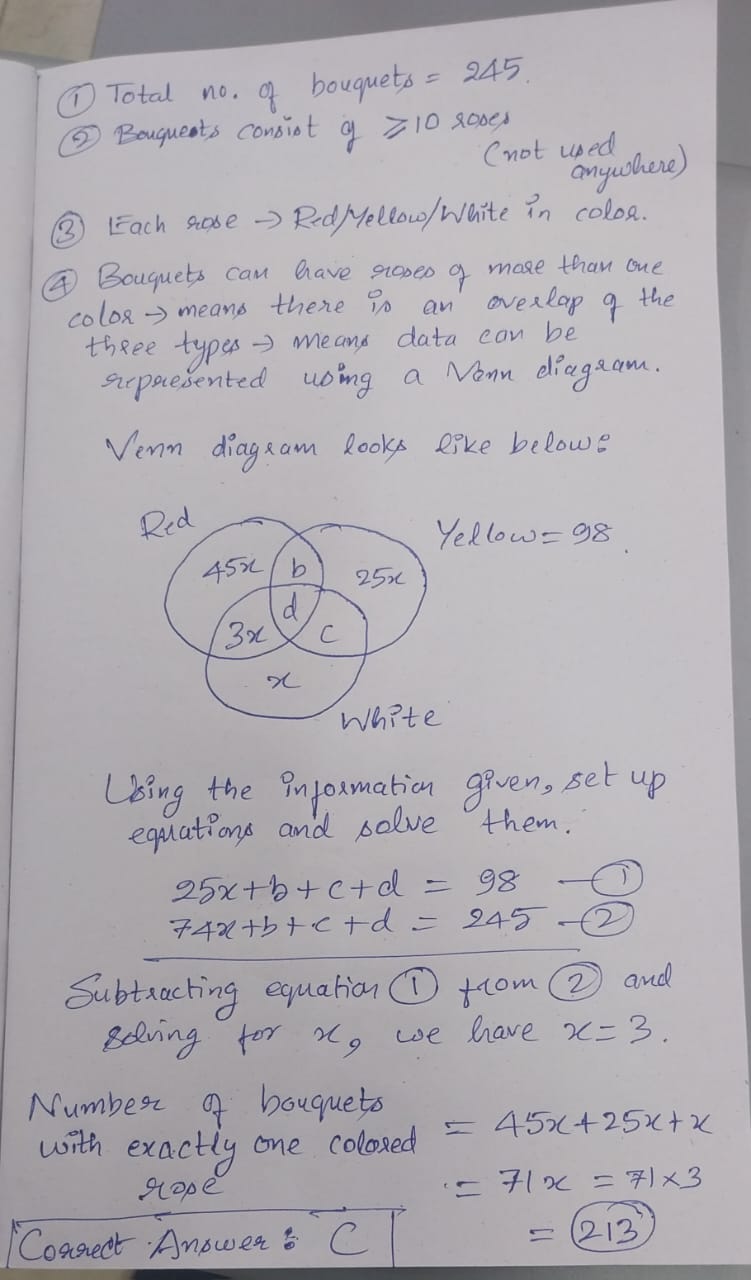 ① Total no. of bouquets = 245.
② Bouqueots consist of ≥10 roses
(not used
anywhere)
③ Each rose → Red/Yellow/White in color.
④ Bouquets can have roses of more than one
color → means there is an overlap of the
three types → means data can be
represented using a Venn diagram.
Venn diagram looks like below:
Red
Yellow = 98.
45x b 25x
d
3x c
x
White
Using the information given, set up
equations and solve them.
25x+b+c+d = 98 —①
74x+b+c+d = 245 —②
Subtracting equation ① from ② and
solving for x, we have x=3.
Number of bouquets
with exactly one colored
rose
= 45x+25x+x
= 71x = 71×3
= 213
Correct Answer : C